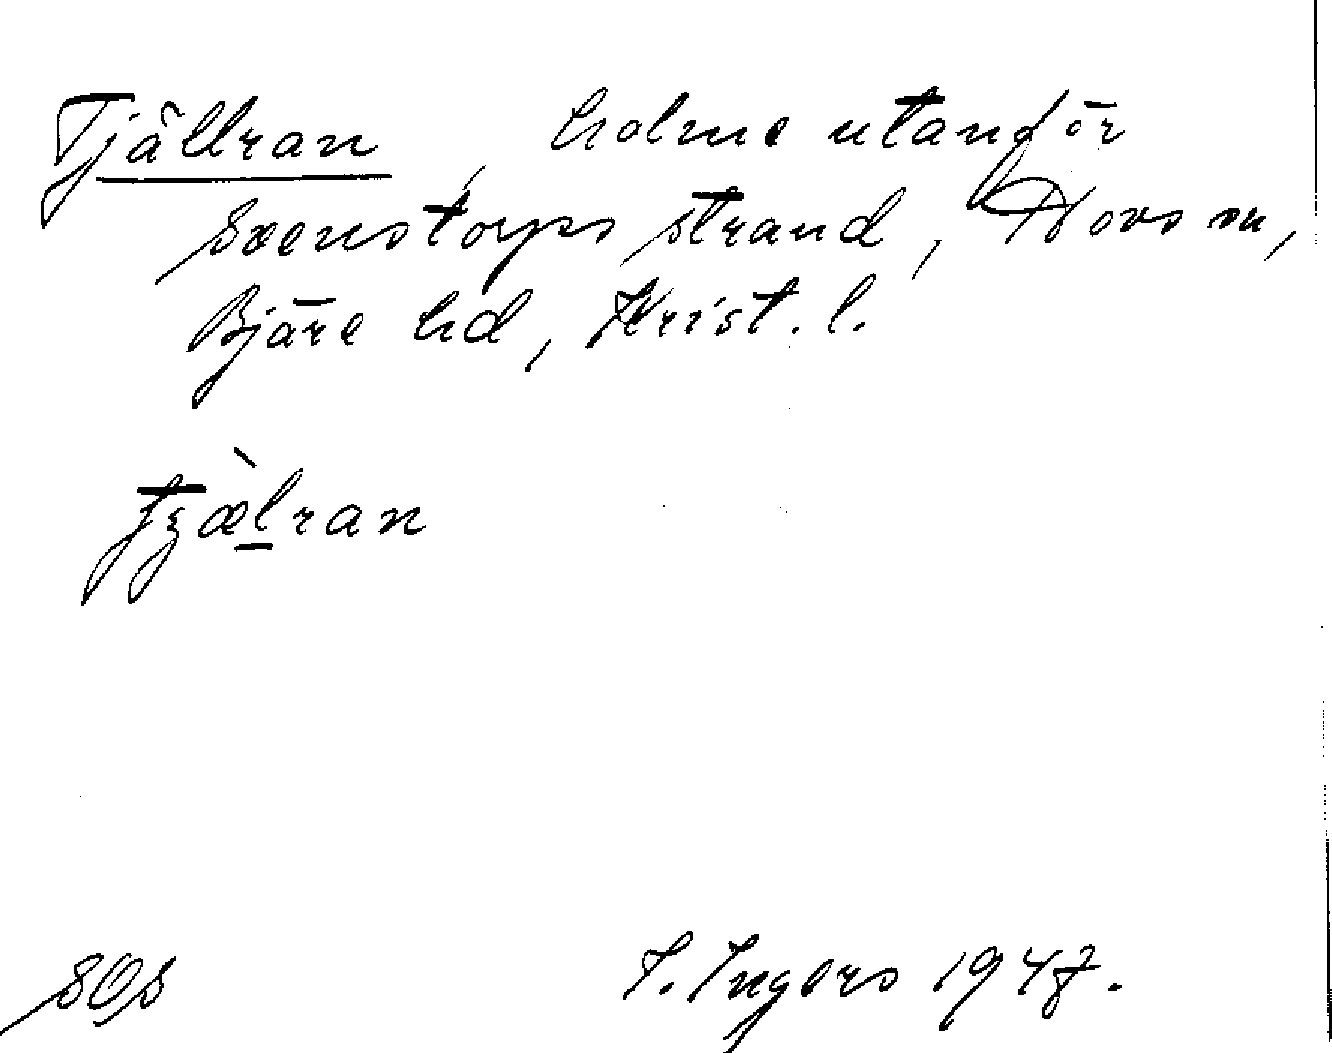 Tjällran, holme utanför
Svenstorps strand, Hovs sn,
Bjäre hd, Krist. l.
I. Ingers 1947.